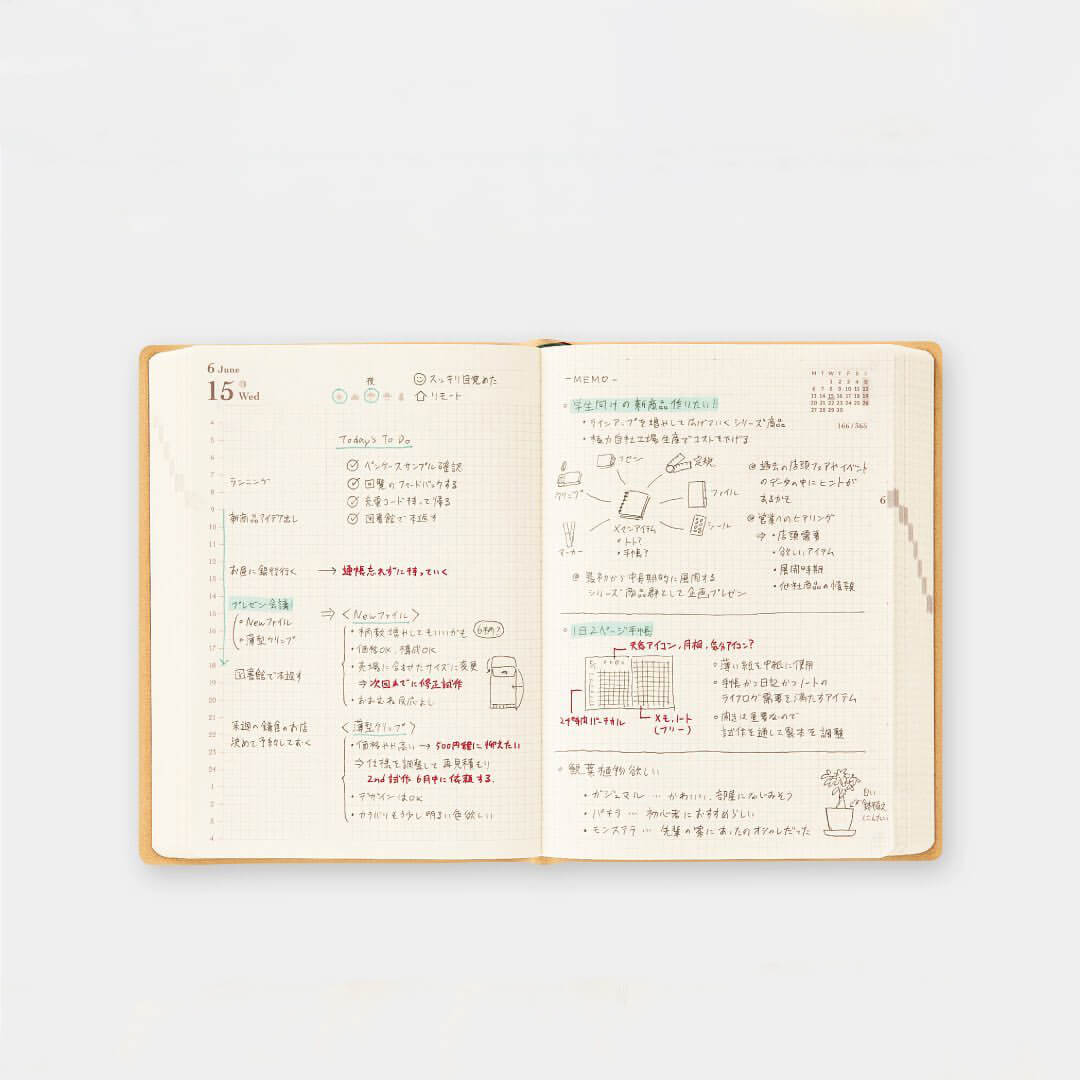 6 June
15 Wed
夜
スッキリ目覚めた
リモート
Today's To Do
ペンケースサンプル確認
回覧のフィードバックする
充電コード持って帰る
図書館で本返す
4
5
6
7
8
9
10
11
12
13
14
15
16
17
18
19
20
21
22
23
24
1
2
3
4
ランニング
新商品アイデア出し
お昼に銀行行く → 通帳忘れずに持っていく
プレゼン会議
・Newファイル
・薄型クリップ
図書館で本返す
来週の鎌倉のお店
決めて予約しておく
⇒ 〈Newファイル〉
・柄数増やしてもいいかも 6柄?
・価格OK、構成OK
・売場に合わせたサイズに変更
⇒次回までに修正試作
・おおむね反応よし
〈薄型クリップ〉
・価格やや高い → 500円程に抑えたい
⇒仕様を調整して再見積もり
2nd試作 6月中に依頼する.
・デザインはOK
・カラバリもう少し明るい色欲しい
-MEMO-
M T W T F S S
1 2 3 4 5
6 7 8 9 10 11 12
13 14 15 16 17 18 19
20 21 22 23 24 25 26
27 28 29 30
166/365
6
学生向けの新商品作りたい!
・ラインアップを増やして広げていくシリーズ商品
・極力自社工場生産でコストを下げる
フセン
定規
クリップ
ファイル
シール
マーカー
メインアイテム
・ノート?
・手帳?
@ 過去の店頭フェアやイベント
のデータの中にヒントが
あるかも
@ 営業へのヒアリング
⇒ ・店頭需要
・欲しいアイテム
・展開時期
・他社商品の情報
@ 最初から中長期的に展開する
シリーズ商品群として企画プレゼン
1日2ページ手帳
天気アイコン、月相、気分アイコン?
24時間バーチカル
メモ、ノート
(フリー)
薄い紙を中紙に使用
手帳かつ日記かつノートの
ライフログ需要を満たすアイテム
開きは重要なので
試作を通して製本を調整
観葉植物欲しい
・ガジュマル … かわいい、部屋になじみそう
・パキラ … 初心者におすすめらしい
・モンステラ … 先輩の家にあったのオシャレだった
白い
鉢植え
にしたい